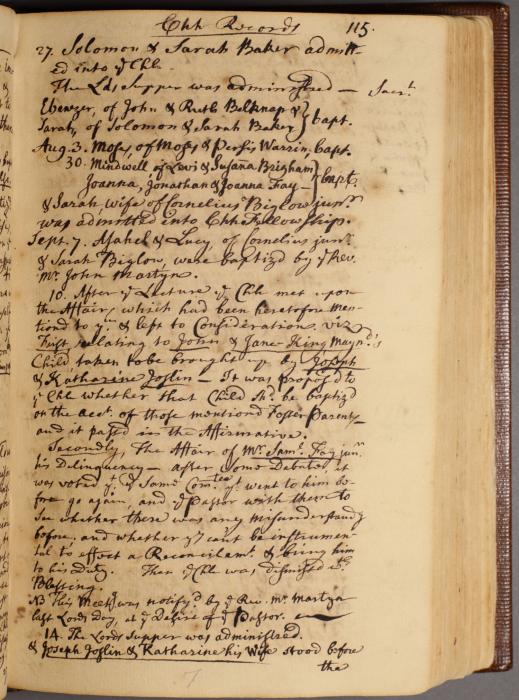 Chh Records 115.
27. Solomon & Sarah Baker admitt-
ed into ye Chh.
The Lds Supper was administred — Sacrt
Ebenezer, of John & Ruth Belknap &
Sarah, of Solomon & Sarah Baker } bapt.
Aug. 3. Moses, of Moses & Persis Warrin, bapt.
30. Mindwell of Levi & Susana Brigham
Joanna, Jonathan & Joanna Fay — } bapt.
& Sarah wife of Cornelius Biglow junr
was admitted into Chh Fellowship.
Sept. 7. Asahel & Lucy, of Cornelius junr
& Sarah Biglow, were baptizd by ye Rev.
Mr. John Martyn.
10. After ye Lecture ye Chh met upon
the Affairs which had been heretofore men-
tiond to ym & left to Consideration viz
First relating to John & Jane King Maynd's
Child, taken to be brought up by Joseph
& Katharine Joslin — It was propos'd to
ye Chh whether that Child shd be baptizd
on the acct of those mentiond Foster Parents —
and it passd in the Affirmative.
Secondly, The Affair of Mr. Saml Fay junr
his Delinquency — after Some Debates it
was voted yt ye Same Comtee yt went to him be-
fore go again, and ye Pastor with them to
See whether there was any misunderstandg
before, and whether yy cant be instrumen-
tal to effect a Reconcilemt & bring him
to his Duty. Then ye Chh was dismissd wth
Blessing.
NB This Meetg was notify'd by ye Rev. Mr. Martyn
last Lords Day, at ye Desire of ye Pastor.
14. The Lords Supper was administred.
& Joseph Joslin & Katharine his Wife stood before
the